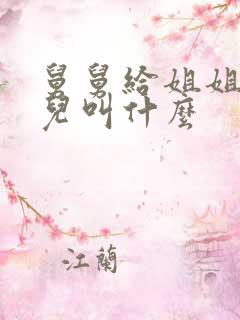 舅舅給姐姐
兒叫什麼
江蘭